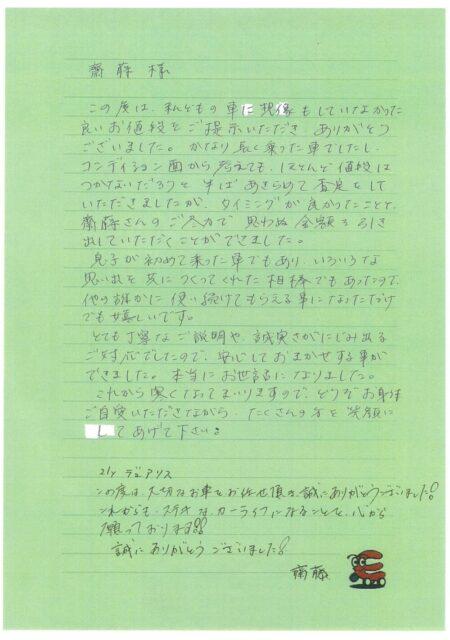 齋藤 様
この度は、私どもの車に想像もしていなかった
良いお値段をご提示いただき、ありがとう
ございました。かなり長く乗った車でしたし、
コンディション面から考えても、ほとんど値段は
つかないだろうと半ばあきらめて査定をして
いただきましたが、タイミングが良かったことと、
齋藤さんのご尽力で思わぬ金額を引き
出していただくことができました。
息子が初めて乗った車でもあり、いろいろな
思い出を共につくってくれた相棒でもあったので、
他の誰かに使い続けてもらえる事になっただけ
でも嬉しいです。
とても丁寧なご説明や、誠実さがにじみ出る
ご対応でしたので、安心しておまかせする事が
できました。本当にお世話になりました。
これから寒くなってまいりますので、どうぞお身体
ご自愛いただきながら、たくさんの方を笑顔に
してあげて下さい。
21y デュアリス
この度は、大切なお車をお任せ頂き、誠にありがとうございました!
これからも、ステキなカーライフになることを、心から
願っております!!
誠にありがとうございました!
齋藤